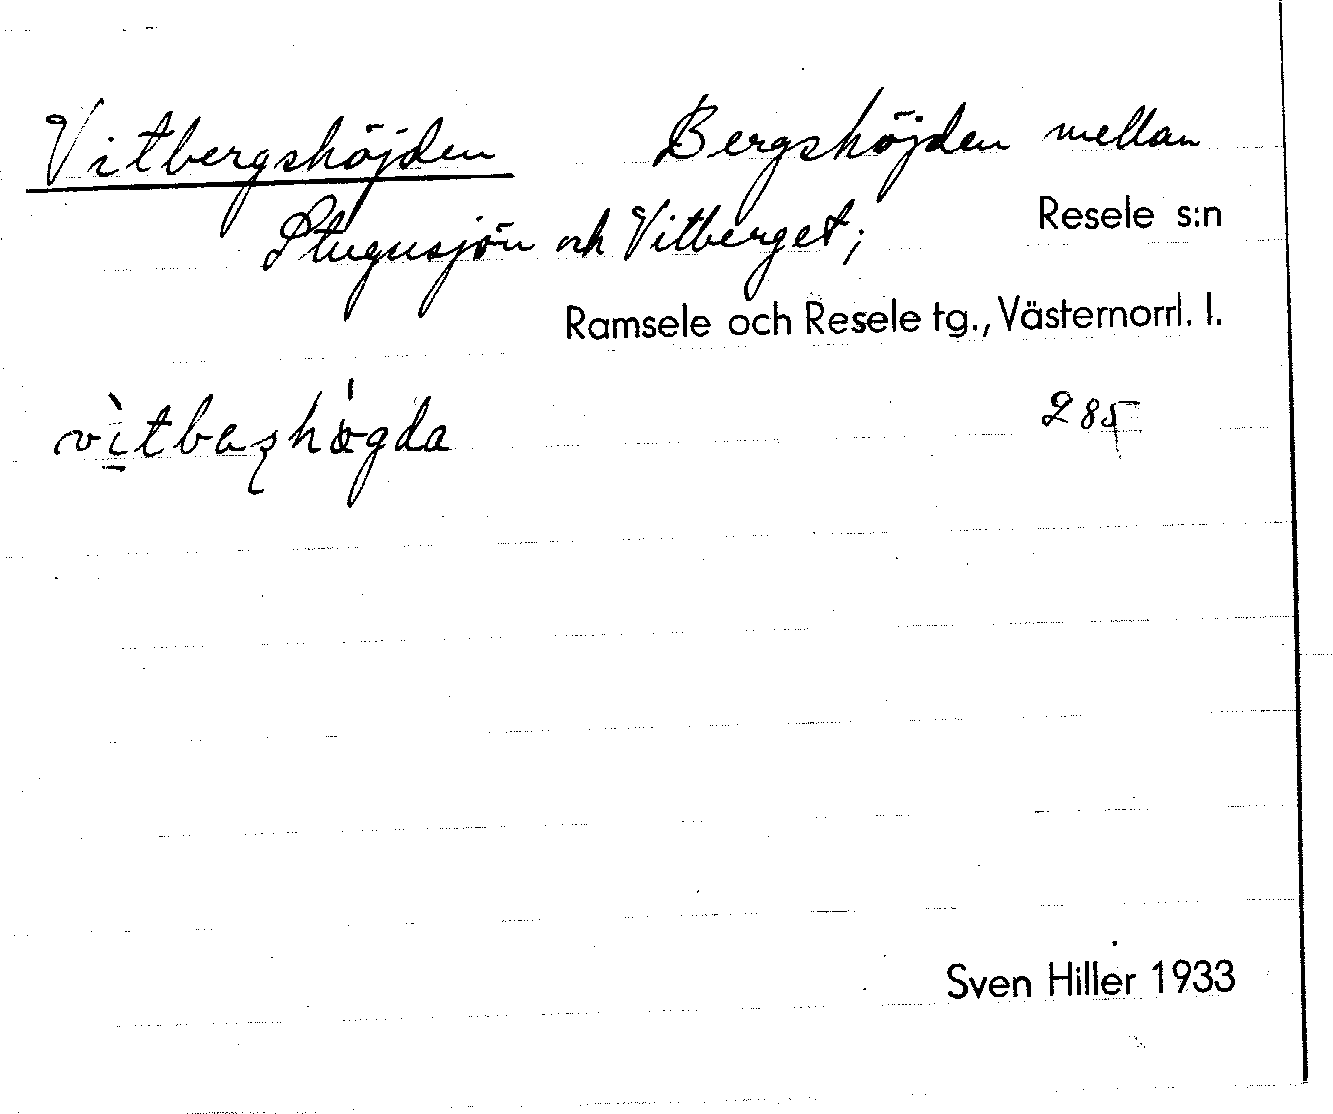 Vitbergshöjden Bergshöjden mellan
Stugusjön och Vitberget; Resele s:n
Ramsele och Resele tg., Västernorrl. l.
285
Sven Hiller 1933